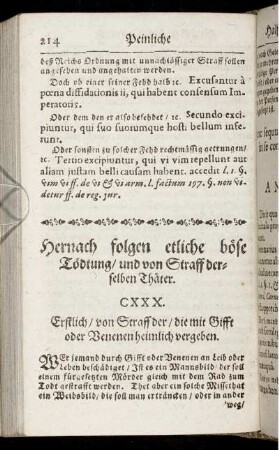 214 Peinliche
deß Reichs Ordnung mit unnachlässiger Straff sollen
angesehen und angehalten werden.
Doch ob einer seiner Fehd halb ꝛc. Excusantur à
pœna diffidationis ii, qui habent consensum Im-
peratoris.
Oder dem den er also befehdet / ꝛc. Secundo exci-
piuntur, qui suo suorumque hosti bellum infe-
runt.
Oder sonsten zu solcher Fehd rechtmässig getrungen/
ꝛc. Tertio excipiuntur, qui vi vim repellunt aut
aliam justam belli causam habent. accedit l. 1. §.
vim vi ff. de vi & vi arm. l. factum 197. §. non vi-
detur ff. de reg. jur.
Hernach folgen etliche böse
Tödtung / und von Straff der-
selben Thäter.
CXXX.
Erstlich / von Straff der / die mit Gifft
oder Venenen heimlich vergeben.
WEr jemand durch Gifft oder Venenen an Leib oder
Leben beschädiget / Ist es ein Mannsbild / der soll
einem fürgesetzten Mörder gleich mit dem Rad zum
Todt gestrafft werden. Thet aber ein solche Missethat
ein Weibsbild / die soll man erträncken / oder in ander
weg /